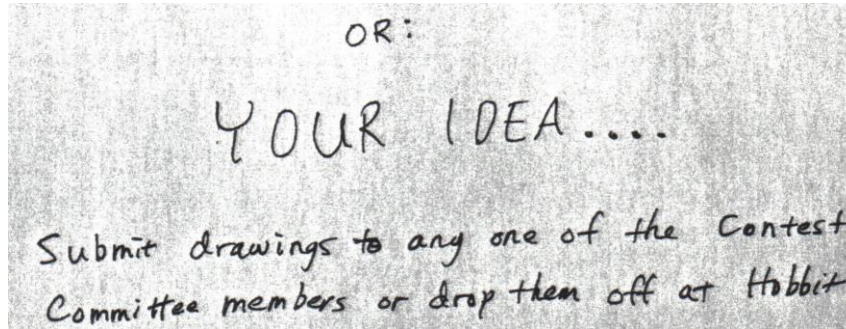 OR:
YOUR IDEA....
Submit drawings to any one of the Contest
Committee members or drop them off at Hobbit